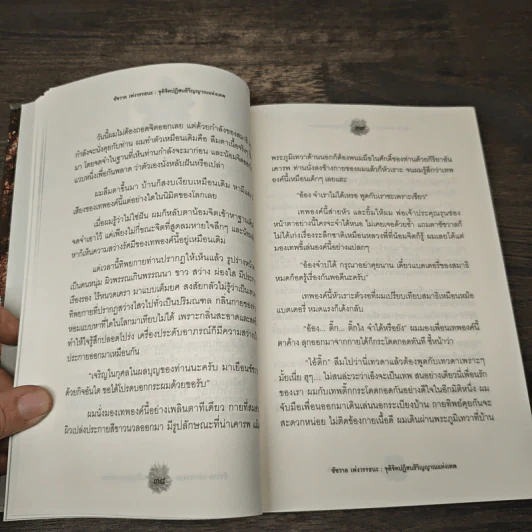 ชัชวาล เพ่งวรรธนะ : จุติจิตปฏิสนธิวิญญาณแห่งเทพ
วันนี้ผมไม่ต้องถอดจิตออกเลย แต่ด้วยกำลังของสมาธิ
กำลังจะนั่งคุยกับท่าน ผมทำตัวเหมือนเดิมคือ ลืมตาเนื้อจริงๆ
มา โดยจดจำในฐานที่เห็นท่านกำลังจะมาก่อน และน้อมจิต
แวบหนึ่งเพื่อกันพลาด ว่าตัวเองนั่งหลับฝันหรือเปล่า
ผมลืมตาขึ้นมา บ้านก็สงบเงียบเหมือนเดิม
เสียงของเทพองค์นี้แต่อย่างใดในนิมิตของโลกเลย
เมื่อผมรู้ว่าไม่ใช่ฝัน ผมก็หลับตาน้อมจิตเข้าหาฐาน
จดจำเอาไว้ แต่เพียงไม่กี่ขณะจิตที่สูดลมหายใจลึกๆ และน้อม
หากก็เห็นความสว่างรัศมีของเทพองค์นี้อยู่เหมือนเดิม
แต่เวลานี้ทิพยกายท่านปรากฏให้เห็นแล้ว รูปร่างหน้า
เป็นคนหนุ่ม ผิวพรรณเกินพรรณนา ขาว สว่าง ผ่องใส มี
เรืองรอง ไร้หนวดเครา มาแบบเต็มยศ สงสัยกลัวไม่รู้ว่าเป็น
ทิพยกายที่ปรากฏสว่างไสวไปทั่วเป็นปริมณฑล กลิ่นกายของ
หอมแบบหาที่ใดในโลกมาเทียบไม่ได้ เพราะกลิ่นสะอาดและ
ทำให้ใจรู้สึกปลอดโปร่ง เครื่องประดับอาภรณ์ก็มีความสว่าง
ประกายออกมาเหมือนกัน
"เจริญในกุศลในผลบุญของท่านนะครับ มาเยือน
ด้วยกิจอันใด ขอได้โปรดบอกกระผมด้วยขอรับ"
ผมนั่งมองเทพองค์นี้อย่างเพลินตาทีเดียว กายที่
ผิวเปล่งประกายสีขาวนวลออกมา มีรูปลักษณะที่น่าเคารพ
๓๘
พระภูมิเทวาด้านนอกก็ต้องพนมมือไหว้ศักดิ์ของท่านด้วยกิริยาอัน
เคารพ ท่านนั่งลงข้างกายของผมแล้วก็หัวเราะ จนผมรู้สึกว่าเทพ
องค์นี้เหมือนเด็กๆ เลยแฮะ
"อ้อง จำเราไม่ได้เหรอ พูดกับเราซะเพราะเชียว"
เทพองค์นี้ส่ายหัว และยิ้มให้ผม พ่อเจ้าประคุณรุนช่อง
หน้าตาอย่างนี้ใครจะจำได้หนอ ไม่เคยเจอด้วยซ้ำ แถมดาชัชวาลก็
ไม่ได้เก่งเรื่องระลึกชาติเหมือนหลวงพี่ที่น้อมจิตก็รู้ ผมเลยได้แต่
มองเทพยิ้มเล่นองค์นี้อย่างแปลกๆ
"อ้องจำบ่ได้ กรุณาอย่าคุยนาน เดี๋ยวแบตเตอรี่ของสมาธิ
หมดก็อดรู้เรื่องกันพอดีนะครับ"
เทพองค์นี้หัวเราะตัวงอที่ผมเปรียบเทียบสมาธิเหมือนหม้อ
แบตเตอรี่ หมดแรงก็เด้งกลับ
"อ้อง... ติ๊ก... ติ๊กไง จำได้หรือยัง" ผมมองเพื่อนเทพองค์นี้
ตาค้าง ลุกออกมาจากกายได้ก็กระโดดกอดทันที ชี้หน้าว่า
"ไอ้ติ๊ก" ลืมไปว่านี่เทวดาแล้วต้องพูดกับเทวดาเพราะๆ
มั้ยเนี่ย ฮุๆ... ไม่สนล่ะวะว่าเอ็งจะเป็นเทพ สนอย่างเดียวนี่เพื่อนรัก
ของเรา ผมกับเทพติ๊กกระโดดกอดกันอย่างดีใจในอีกมิติหนึ่ง ผม
จับมือเพื่อนออกมาเดินเล่นนอกระเบียงบ้าน กายทิพย์คุยกันจะ
สะดวกหน่อย ไม่ติดข้องกายเนื้อดี ผมเดินผ่านพระภูมิเทวาที่บ้าน
ชัชวาล เพ่งวรรธนะ : จุติจิตปฏิสนธิวิญญาณแห่งเทพ